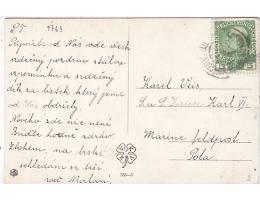 P.T. 1769
Přijměte od Nás vde všech
srdečný pozdrav stálou
vzpomínku a srdečný
dík za lístek který jsme
od Vás obdrželi
Nového zde nic není
Buďte hodně zdrávi
Zbohem, na brzké
shledání se těší
rod.
Karel
K.u.K. Karl VI.
Marine feldpost
Pola